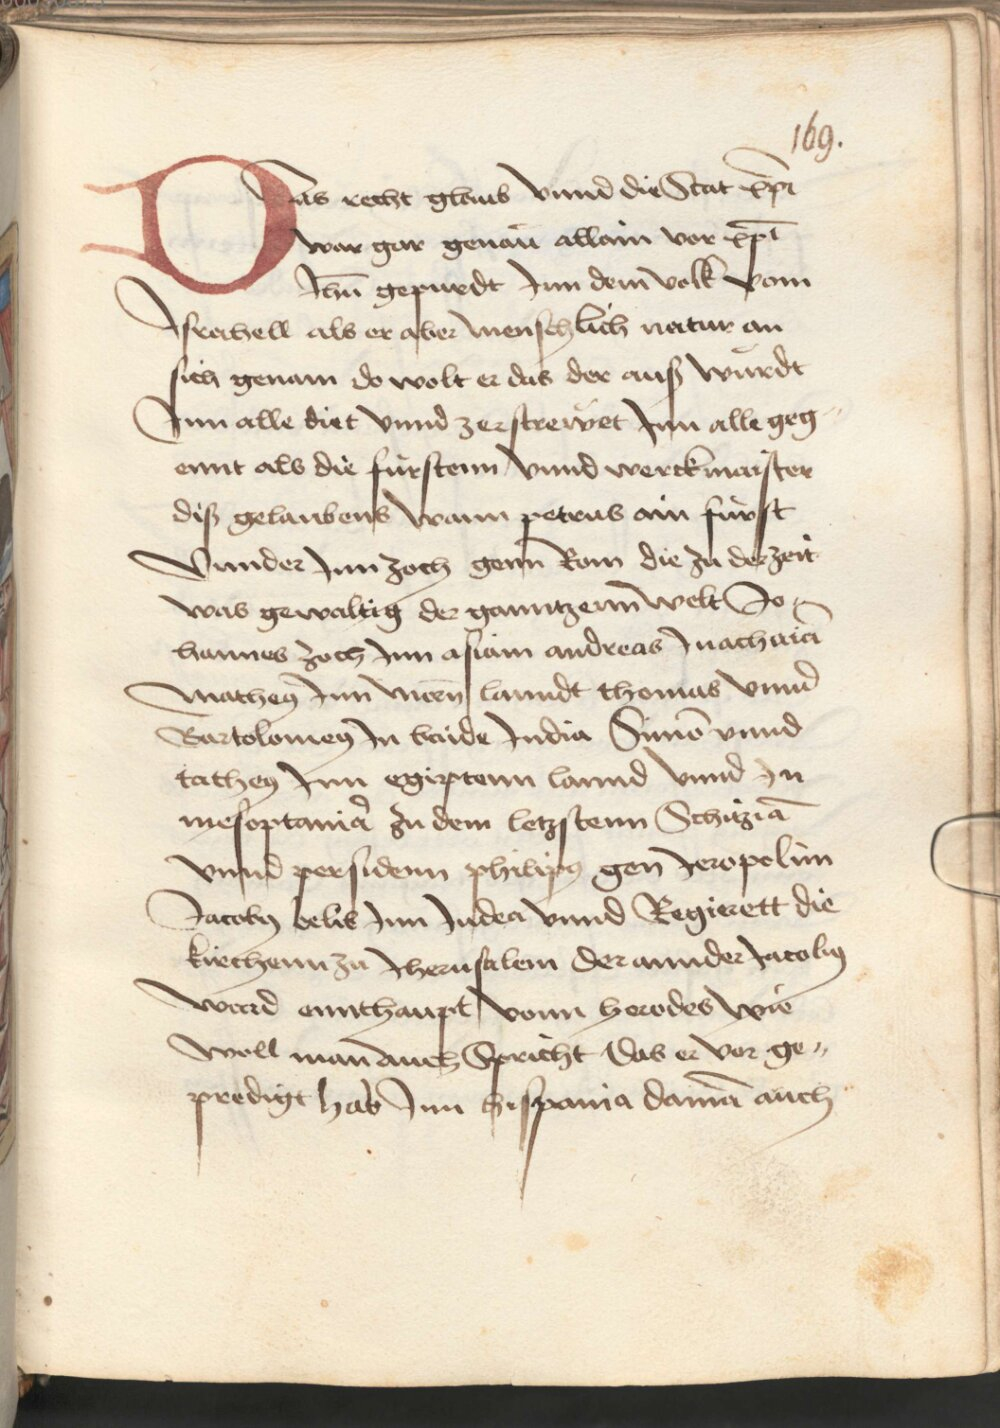 169.
Das recht glaub vnnd die Stat xp̄i
war gar genaū allain vor xp̄i
Jhū gepurdt Jnn dem volk vom
Jsrahell als er aber menschlich natur an
sich genam do wolt er das der auß wurdt
Jnn alle diet vnnd zerstrewet Jnn alle geg„
ennt als die fürstenn vnnd werckmaister
diß gelaubens wann petrus ain fürst
vnnder Jnn zoch genn Rom die zu der zeit
was gewaltig der ganntzenn welt Jo„
hannes zoch Jnn asiam andreas Jnachaiā
Matheus Jnn morn lanndt thomas vnnd
Bartolomeus Jn baide Jndia Simō vnnd
tatheus Jnn egiptenn lannd vnnd Jn
mesoptania zu dem letzstenn Schitziā
vnnd persidenn philipus gen Jeropolim
Jacobus belib Jnn Judea vnnd Regierett die
kirchenn zu Jherusalem der annder Jacobus
ward ennthaupt vonn herodes wie
woll man auch Spricht das er vor ge„
predigt hab Jnn hispania damā auch